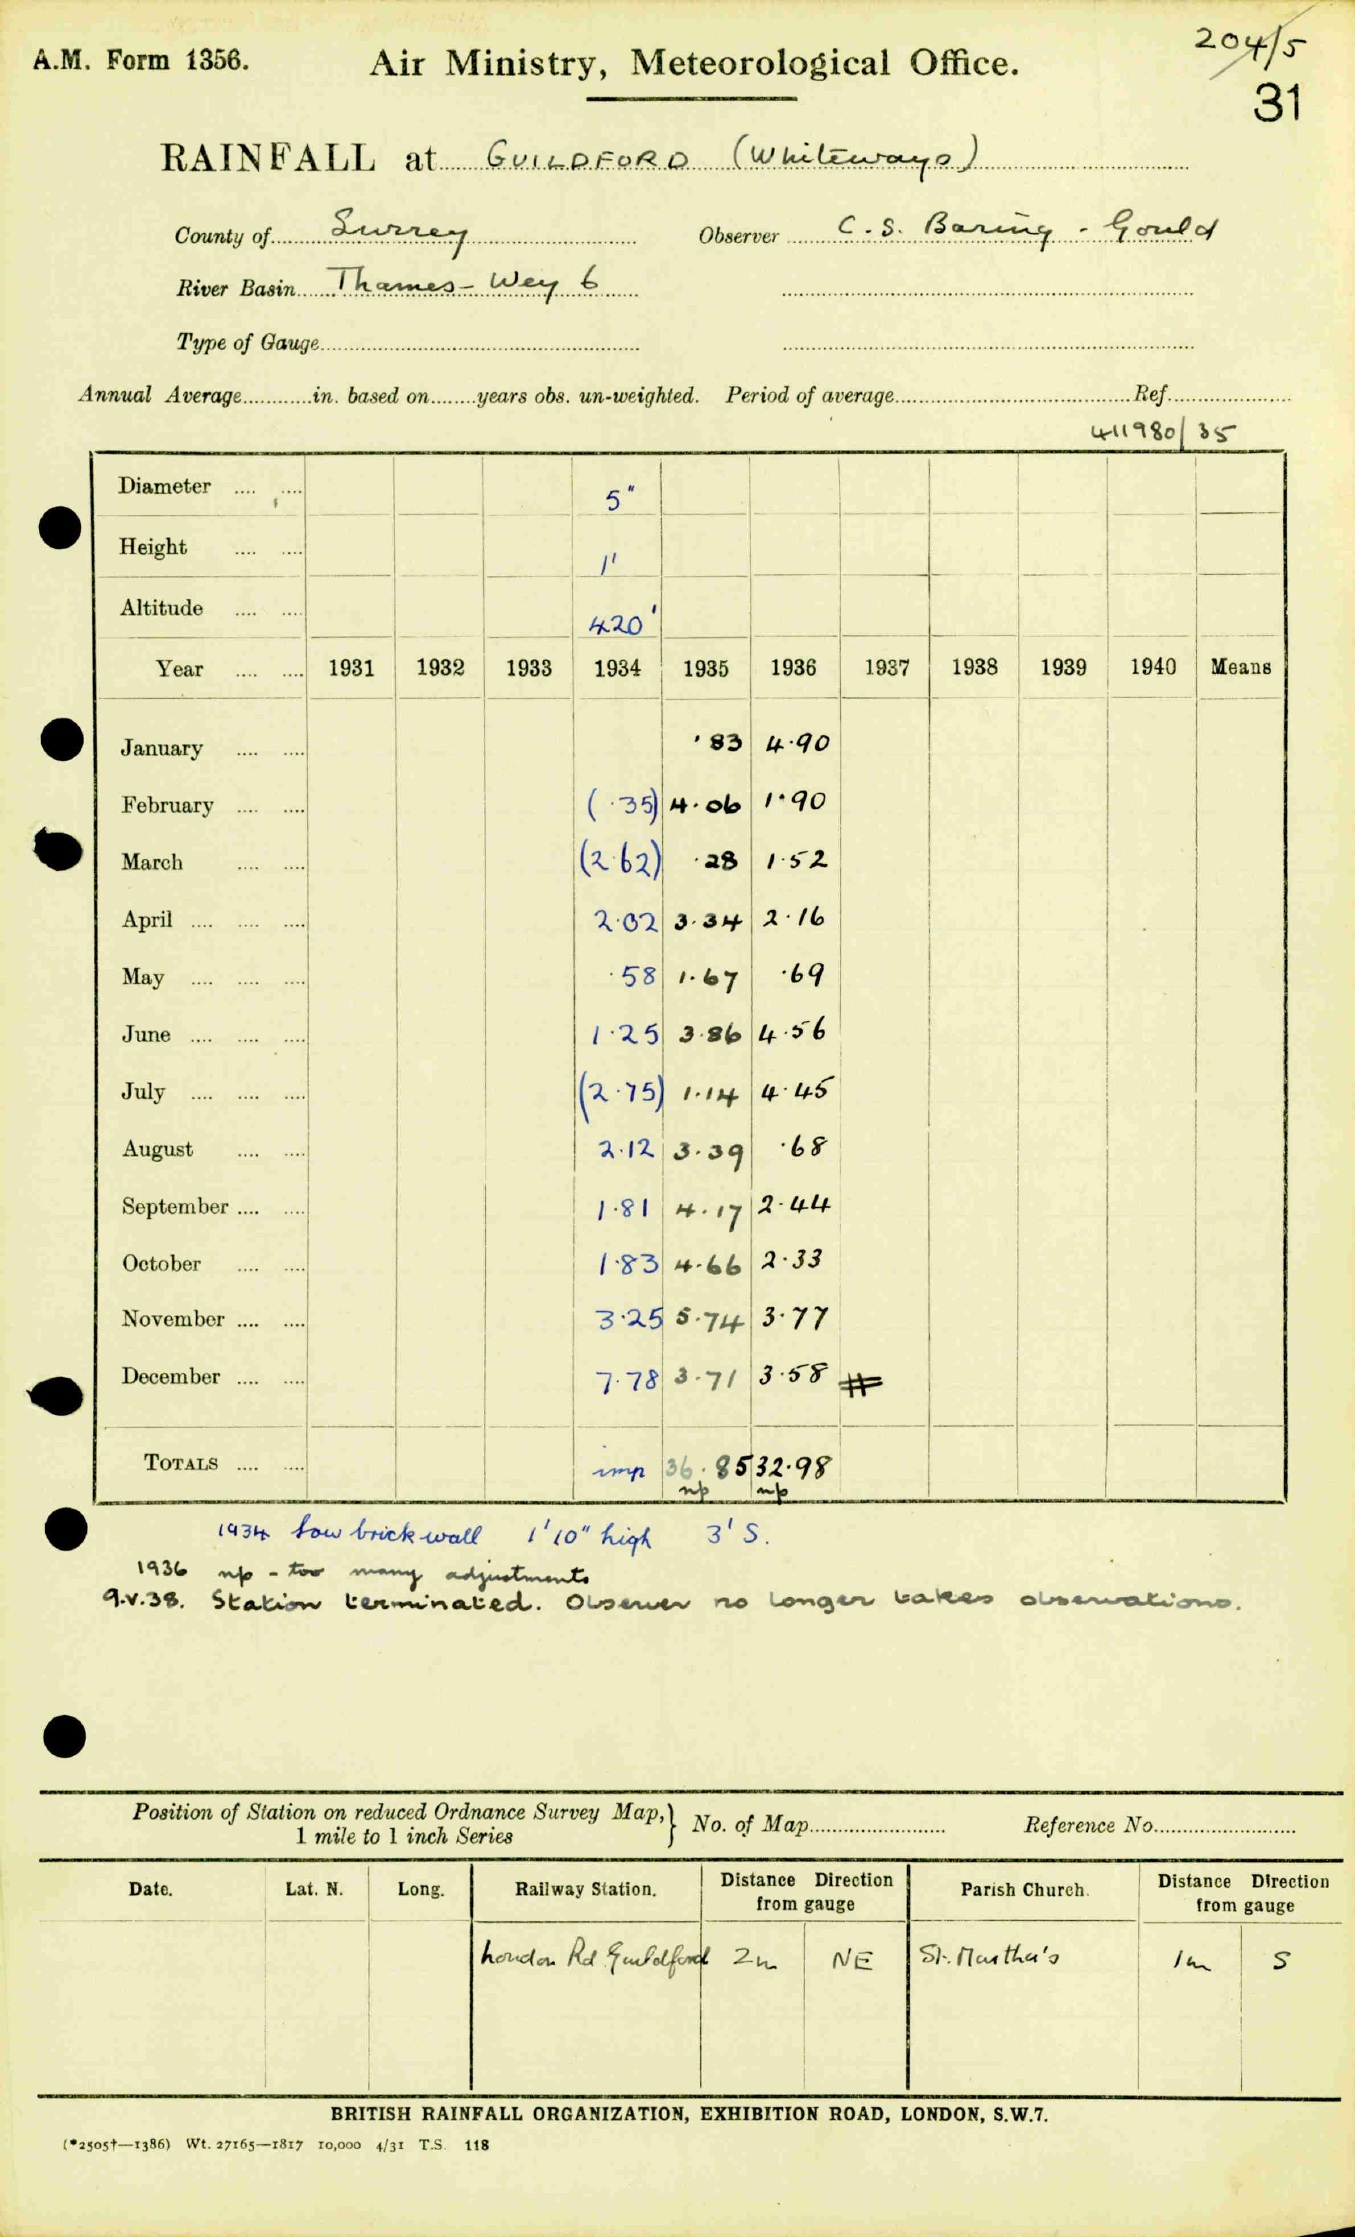 204/5
A.M. Form 1356. Air Ministry, Meteorological Office.
31
RAINFALL at GUILDFORD (Whiteways)
County of Surrey Observer C. S. Baring-Gould
River Basin Thames - Wey 6
Type of Gauge
Annual Average in. based on years obs. un-weighted. Period of average Ref.
411980/35
Diameter 5"
Height 1'
Altitude 420'
Year 1931 1932 1933 1934 1935 1936 1937 1938 1939 1940 Means
January ·83 4·90
February (·35) 4·06 1·90
March (2·62) ·28 1·52
April 2·02 3·34 2·16
May ·58 1·67 ·69
June 1·25 3·86 4·56
July (2·75) 1·14 4·45
August 2·12 3·39 ·68
September 1·81 4·17 2·44
October 1·83 4·66 2·33
November 3·25 5·74 3·77
December 7·78 3·71 3·58 #
TOTALS imp 36·85 32·98
np np
1934 Low brick wall 1'10" high 3' S.
1936 np - too many adjustments
9.v.38. Station terminated. Observer no longer takes observations.
Position of Station on reduced Ordnance Survey Map, } No. of Map Reference No.
1 mile to 1 inch Series
Date. Lat. N. Long. Railway Station. Distance Direction from gauge Parish Church. Distance Direction from gauge
London Rd Guildford 2m NE St. Martha's 1m S
BRITISH RAINFALL ORGANIZATION, EXHIBITION ROAD, LONDON, S.W.7.
(*2505†—1386) Wt. 27165—1817 10,000 4/31 T.S. 118